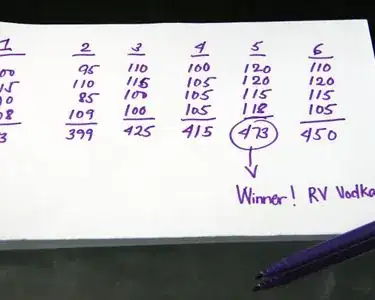 1 2 3 4 5 6
00 95 110 100 120 110
15 110 115 105 120 120
0 85 100 105 115 115
08 109 100 105 118 105
3 399 425 415 473 450
Winner! RV Vodka